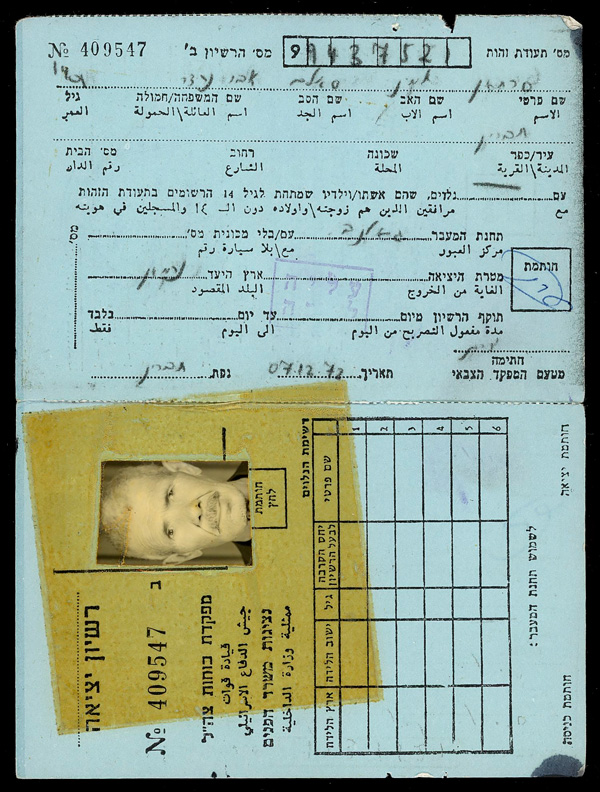 № 409547 מס׳ הרשיון ב׳ 9 9437521 מס׳ תעודת זהות
שם פרטי שם האב שם הסב שם המשפחה/חמולה גיל
الاسم اسم الاب اسم الجد اسم العائلة\الحمولة العمر
חברון
עיר/כפר שכונה רחוב מס׳ הבית
المدينة\القرية المحلة الشارع رقم الدار
עם נלוים, שהם אשתו/וילדיו שמתחת לגיל 14 הרשומים בתעודת הזהות
مع مرافقين الذين هم زوجته\واولاده دون الـ ١٤ والمسجلين في هويته
תחנת המעבר עם/בלי מכונית מס׳ מס׳
مركز العبور مع\بلا سيارة رقم
חותמת
מטרת היציאה ארץ היעד
الغاية من الخروج البلد المقصود
תוקף הרשיון מיום עד יום בלבד
مدة مفعول التصريح من اليوم الى اليوم فقط
חתימה
מטעם המפקד הצבאי תאריך 07.12.72 נפת חברון
רשיון יציאה
№ 409547 ב
מפקדת כוחות צה״ל
قيادة قوات
جيش الدفاع الاسرائيلي
נציגות משרד הפנים
ممثلية وزارة الداخلية
חותמת
לחץ
רשימת הנלוים
שם פרטי יחס הקרבה לבעל הרשיון גיל ישוב הלידה ארץ הלידה
1
2
3
4
5
6
לשימוש תחנת המעבר:
חותמת יציאה
חותמת כניסה